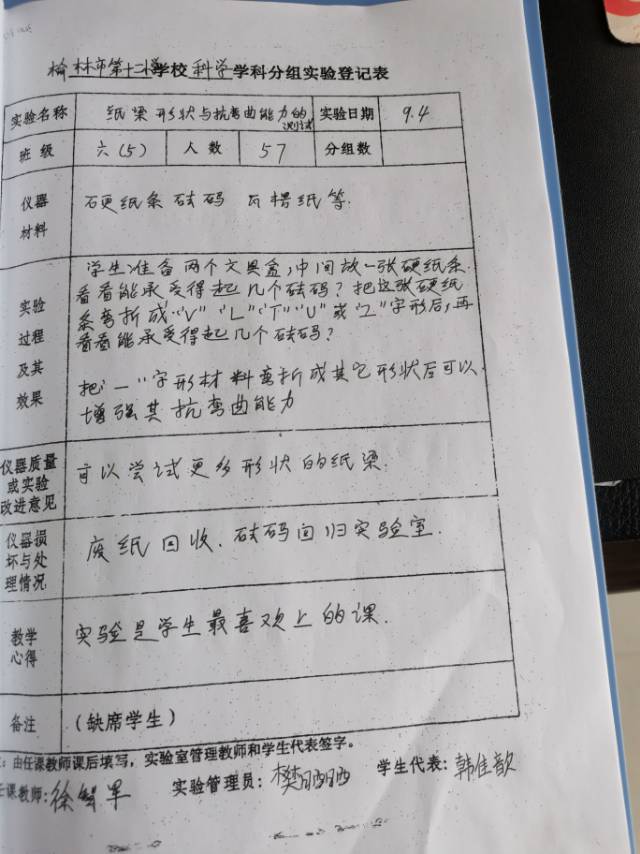 榆林市第十二小学校科学学科分组实验登记表
实验名称 纸梁形状与抗弯曲能力的测试 实验日期 9.4
班级 六(5) 人数 57 分组数
仪器材料 硬纸条 砝码 瓦楞纸等.
实验过程及其效果
学生准备两个文具盒,中间放一张硬纸条
看看能承受得起几个砝码?把这张硬纸
条弯折成"V""L""T""U"或"Z"字形后,再
看看能承受得起几个砝码?
把"一"字形材料弯折成其它形状后可以
增强其抗弯曲能力
仪器质量或实验改进意见 可以尝试更多形状的纸梁.
仪器损坏与处理情况 废纸回收.砝码回归实验室.
教学心得 实验是学生最喜欢上的课.
备注 (缺席学生)
:由任课教师课后填写,实验室管理教师和学生代表签字。
任课教师: 实验管理员:樊晒晒 学生代表:韩佳歆